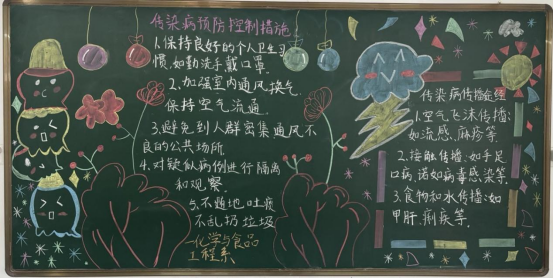 传染病预防控制措施
1.保持良好的个人卫生习
惯,如勤洗手戴口罩.
2.加强室内通风换气,
保持空气流通.
3.避免到人群密集通风不
良的公共场所
4.对疑似病例进行隔离
和观察.
5.不随地吐痰
不乱扔垃圾
化学与食品
工程系
传染病传播途径
1.空气飞沫传播:
如流感.麻疹等.
2.接触传播:如手足
口病,诺如病毒感染等.
3.食物和水传播:如
甲肝.痢疾等.